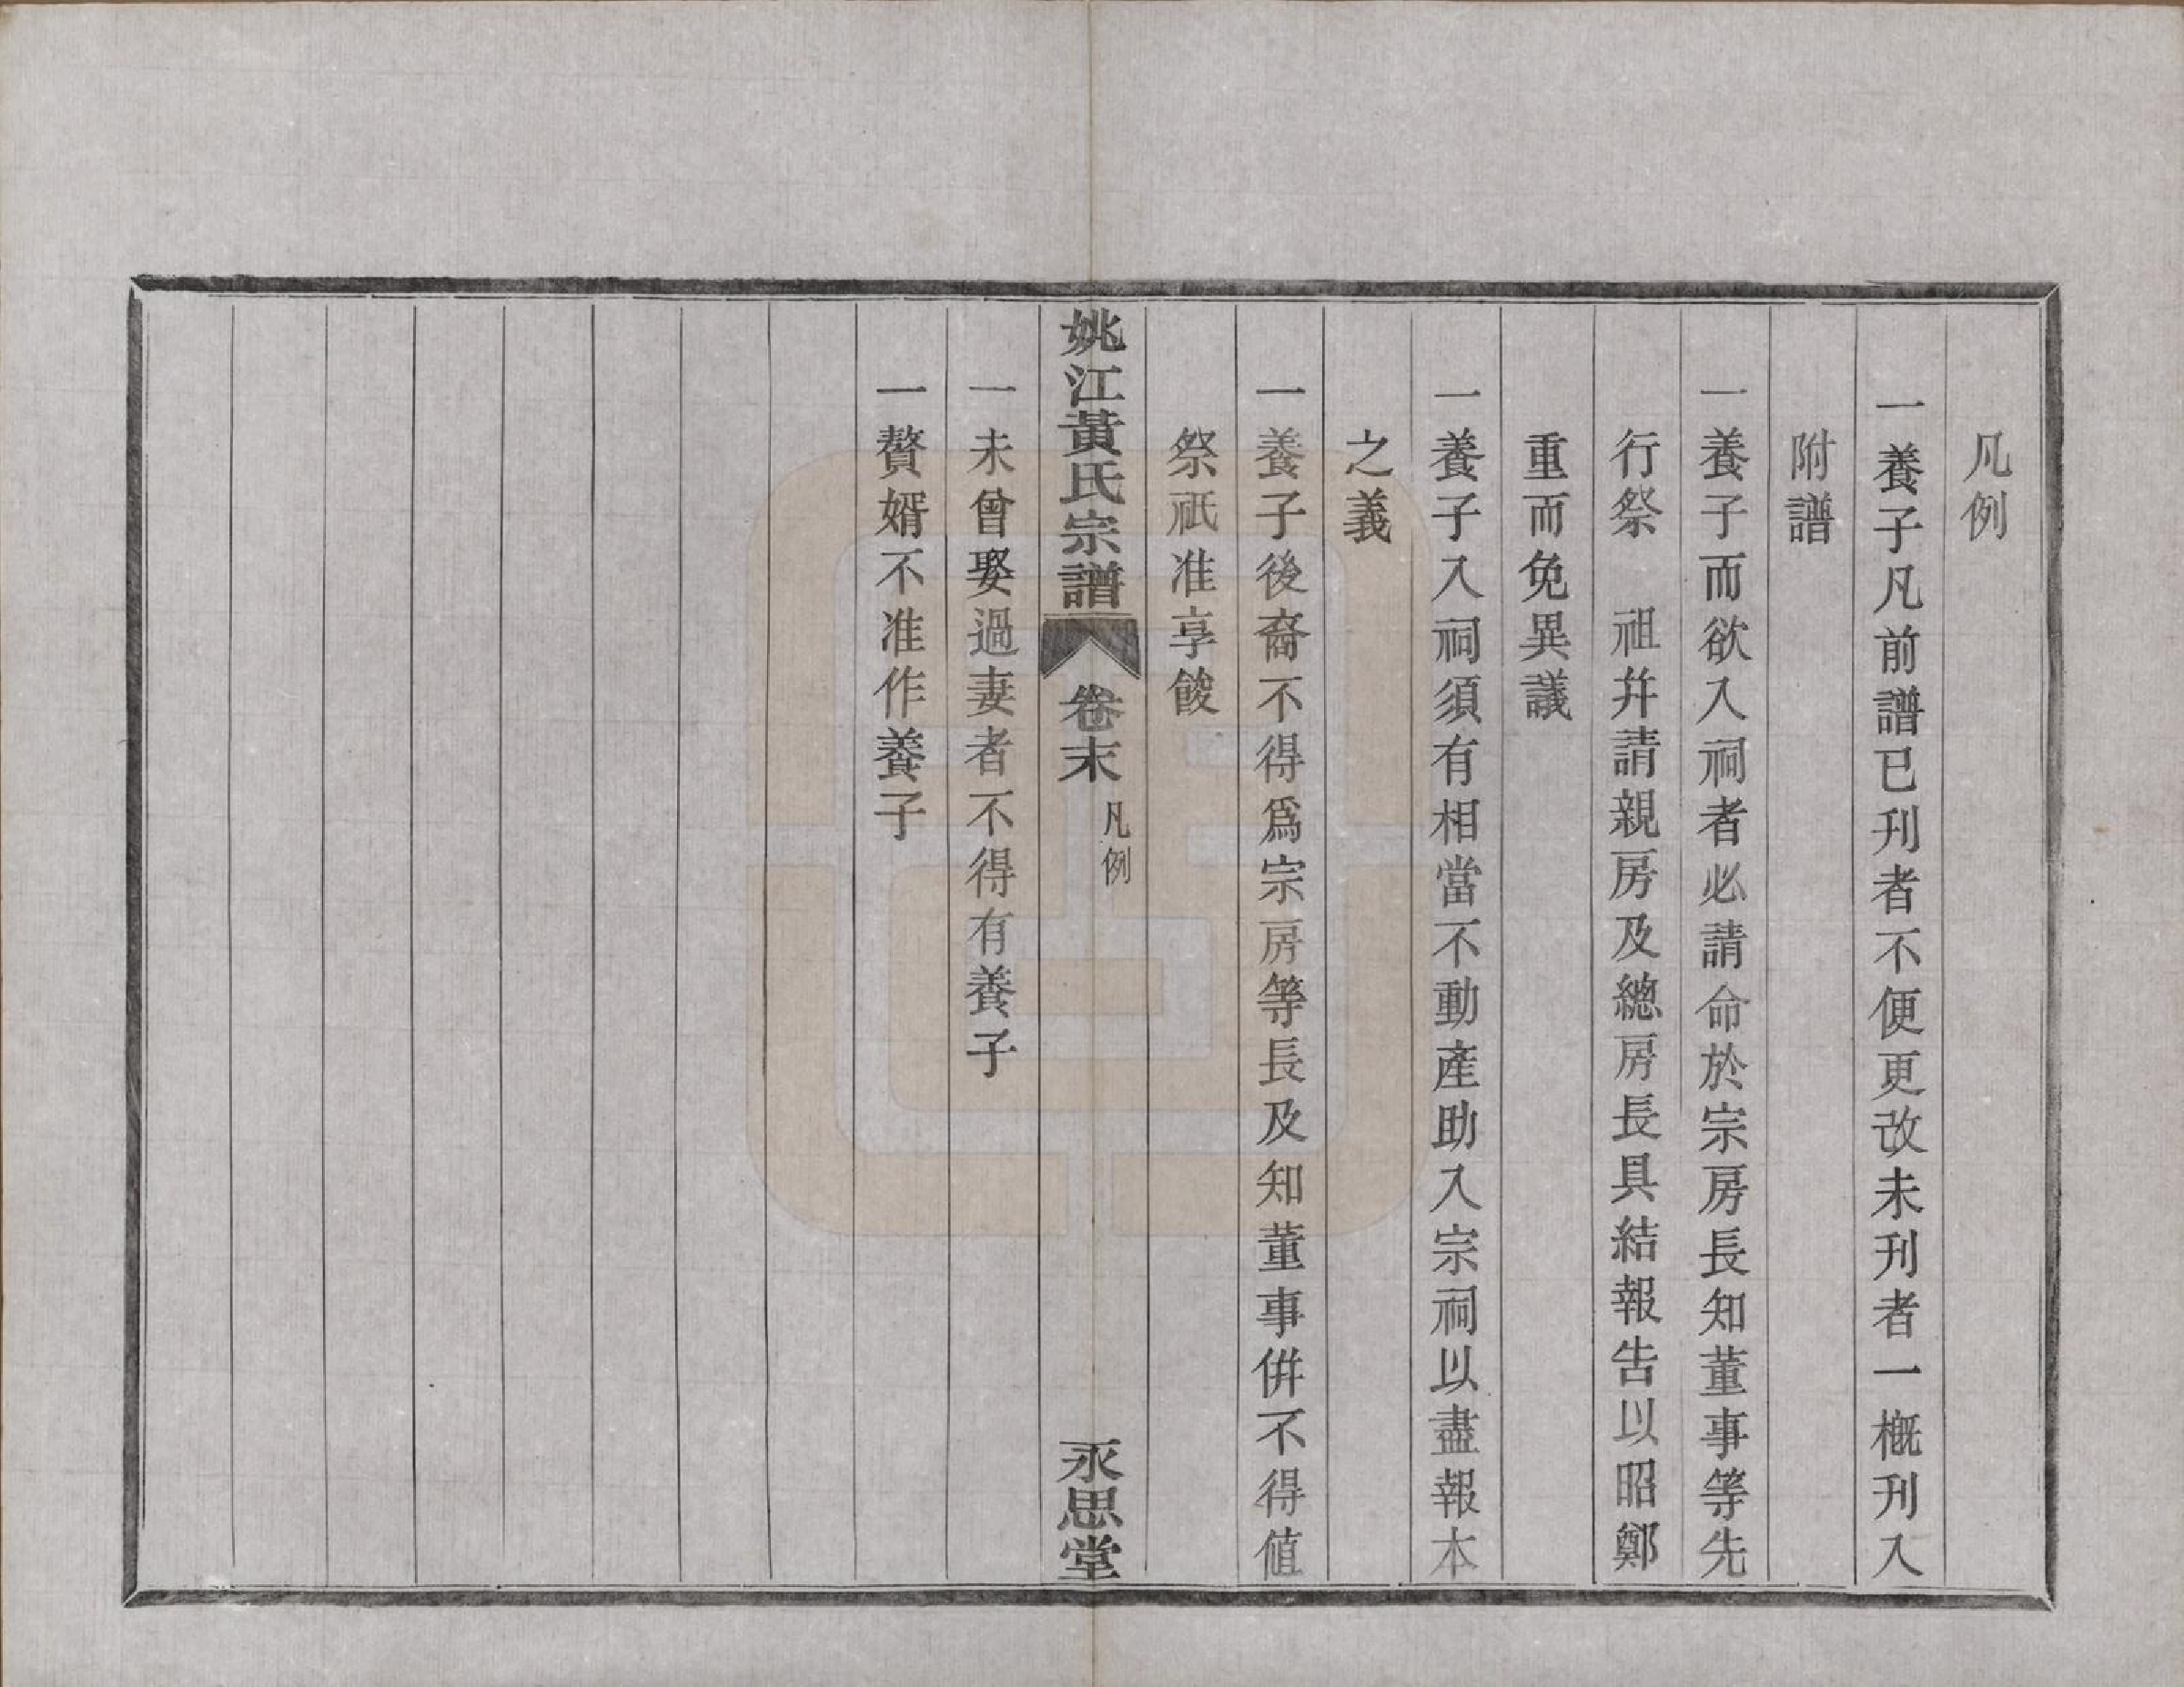 凡例
一養子凡前譜已刊者不便更改未刊者一槪刊入
附譜
一養子而欲入祠者必請命於宗房長知董事等先
行祭　祖幷請親房及總房長具結報告以昭鄭
重而免異議
一養子入祠須有相當不動產助入宗祠以盡報本
之義
一養子後裔不得爲宗房等長及知董事併不得值
祭祇准享餕
姚江黃氏宗譜　卷末　凡例　永思堂
一未曾娶過妻者不得有養子
一贅婿不准作養子